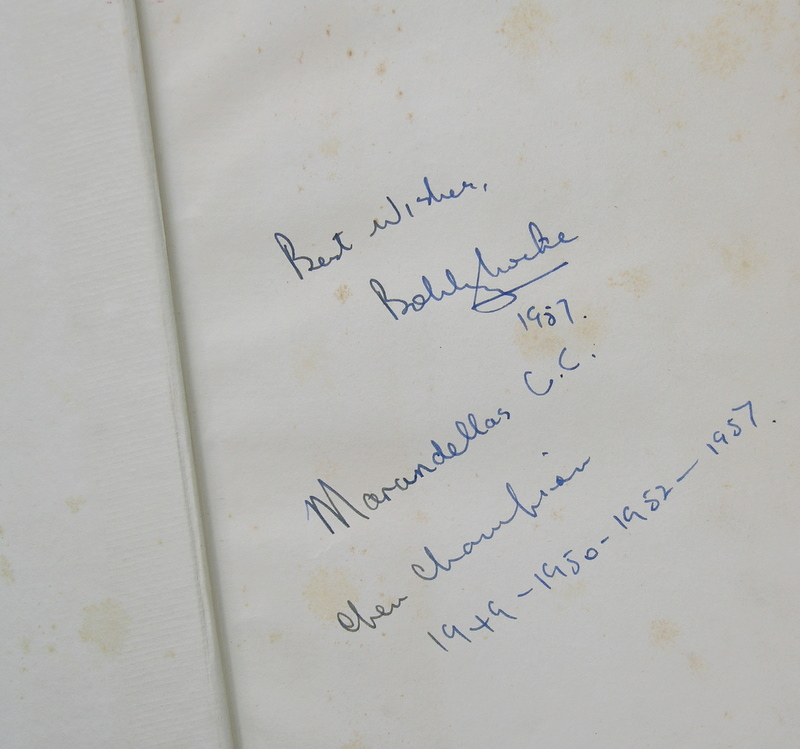 Best Wishes,
Bobby Locke
1957.
Marandellas G.C.
Open Champion
1949-1950-1952-1957.